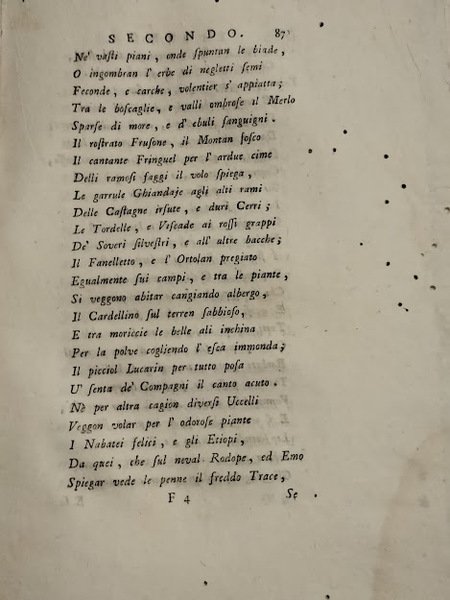 SECONDO. 87
Ne' vasti piani, onde spuntan le biade,
O ingombran l' erbe di negletti semi
Feconde, e carche, volentier s' appiatta;
Tra le boscaglie, e valli ombrose il Merlo
Sparse di more, e d' ebuli sanguigni.
Il rostrato Frusone, il Montan fosco
Il cantante Fringuel per l' ardue cime
Delli ramosi faggi il volo spiega,
Le garrule Ghiandaje agli alti rami
Delle Castagne irsute, e duri Cerri;
Le Tordelle, e Viscade ai rossi grappi
De' Soveri silvestri, e all' altre bacche;
Il Fanelletto, e l' Ortolan pregiato
Egualmente sui campi, e tra le piante,
Si veggono abitar cangiando albergo,
Il Cardellino sul terren sabbioso,
E tra moriccie le belle ali inchina
Per la polve cogliendo l' esca immonda;
Il picciol Lucarin per tutto posa
U' senta de' Compagni il canto acuto.
Nè per altra cagion diversi Uccelli
Veggon volar per l' odorose piante
I Nabatei felici, e gli Etiopi,
Da quei, che sul neval Rodope, ed Emo
Spiegar vede le penne il freddo Trace,
F 4 Se